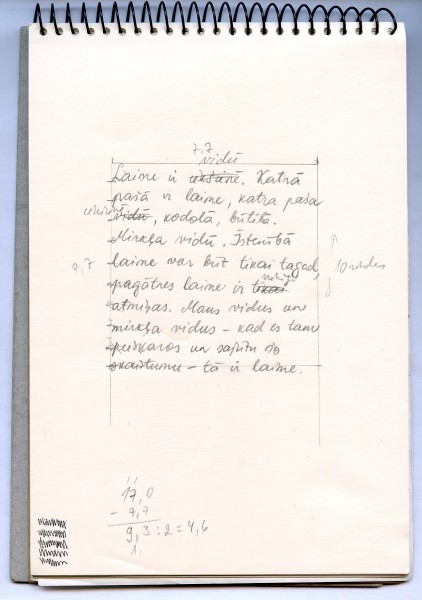 7,7
vidū
Laime ir iekšienē. Katrā
pašā ir laime, katra paša
iekšienē
vidū, kodolā, būtībā.
Mirkļa vidū. Īstenībā
7,7
laime var būt tikai tagad,
10 rindas
pagātnes laime ir tikai
atmiņas. Mans vidus un
mirkļa vidus - kad es tam
pieskaros un sajūtu šo
skaistumu - tā ir laime.
17,0
- 7,7
9,3 : 2 = 4,6
1.